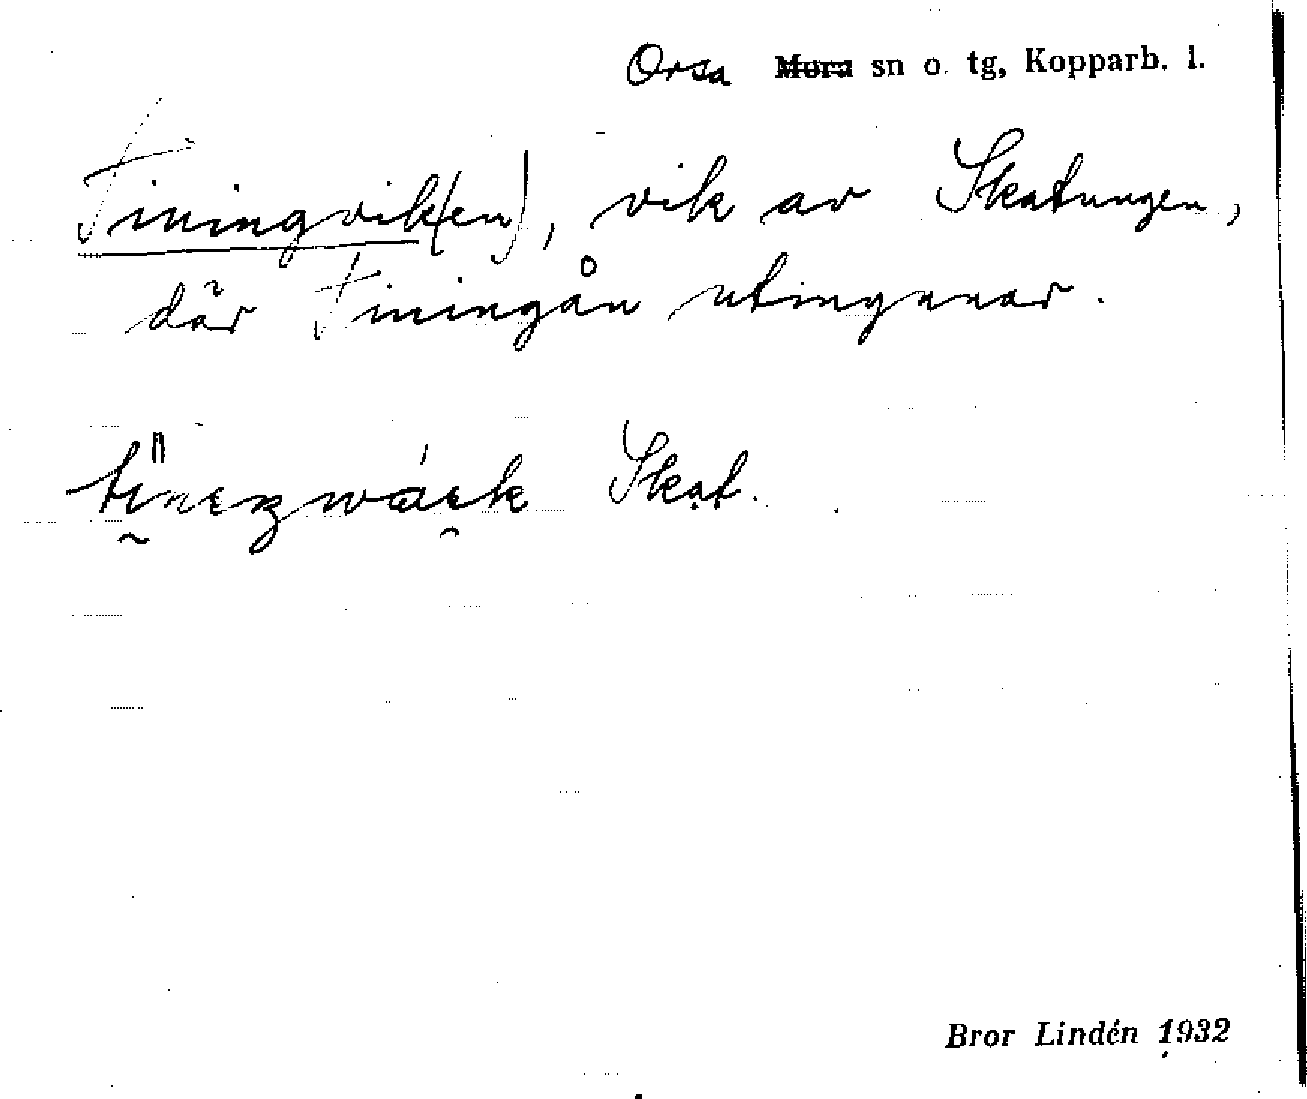 Orsa Mora sn o. tg, Kopparb. l.
Tiningvik(en), vik av Skatungen,
där Tiningån utmynnar.
Skat.
Bror Lindén 1932